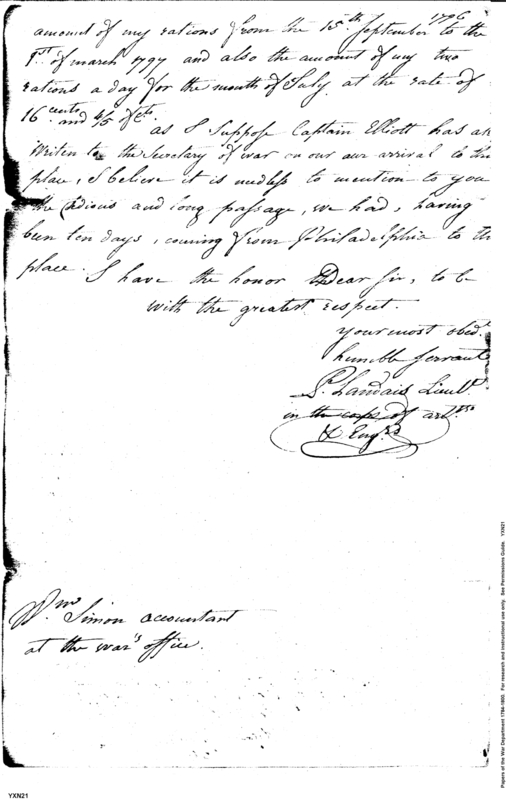 amount of my rations from the 15th September 1796 to the
1st of march 1797 and also the amount of my two
rations a day for the month of July at the rate of
16 cents and 4/5 of cts.
as I Suppose Captain Elliott has
writen to the Secretary of war on our arrival to this
place, I believe it is needless to mention to you
the tedious and long passage, we had, having
been ten days, coming from Philadelphia to th
place. I have the honor Dear Sir, to be
with the greatest respect.
your most obedt
humble servant
P. Landais Lieut.
in the corps of
& Engrs
Wm Simon accountant
at the war's office.
YXN21
Papers of the War Department 1784-1800. For research and instructional use only. See Permissions Guide. YXN21